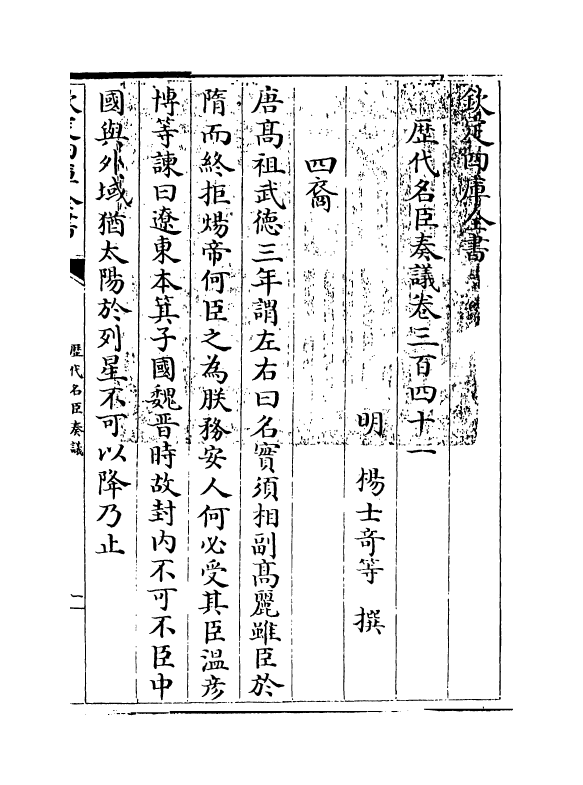 欽定四庫全書
歴代名臣奏議卷三百四十一
明 楊士竒等 撰
四裔
唐髙祖武徳三年謂左右曰名實須相副髙麗雖臣於
隋而終拒煬帝何臣之為朕務安人何必受其臣溫彦
博等諫曰遼東本箕子國魏晋時故封内不可不臣中
國與外域猶太陽於列星不可以降乃止
欽定四庫全書
歴代名臣奏議